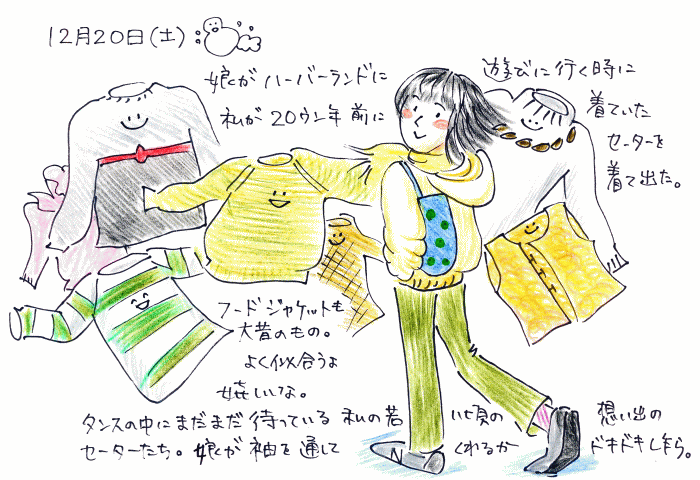 12月20日(土):
娘がハーバーランドに 遊びに行く時に
私が20ウン年前に 着ていた
セーターを
着て出た。
フードジャケットも
大昔のもの。
よく似合うよ
嬉しいな。
タンスの中にまだまだ待っている私の若い頃の 想い出の
セーターたち。娘が袖を通してくれるか ドキドキしながら。